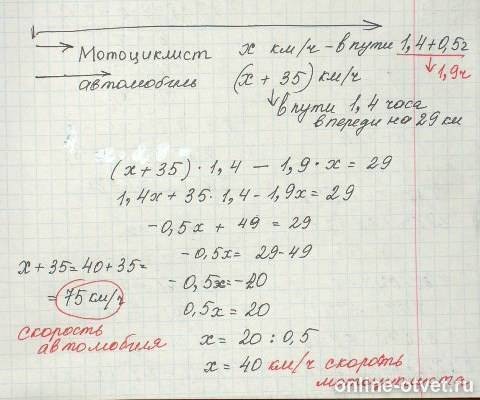 Мотоциклист x км/ч - в пути 1,4+0,5ч
1,9ч
автомобиль (x + 35) км/ч
в пути 1,4 часа
впереди на 29 км
(x+35)·1,4 - 1,9·x = 29
1,4x + 35·1,4 - 1,9x = 29
-0,5x + 49 = 29
-0,5x = 29-49
-0,5x = -20
0,5x = 20
x = 20 : 0,5
x = 40 км/ч скорость
мотоциклиста
x+35=40+35=
= 75 км/ч
скорость
автомобиля
online-otvet.ru